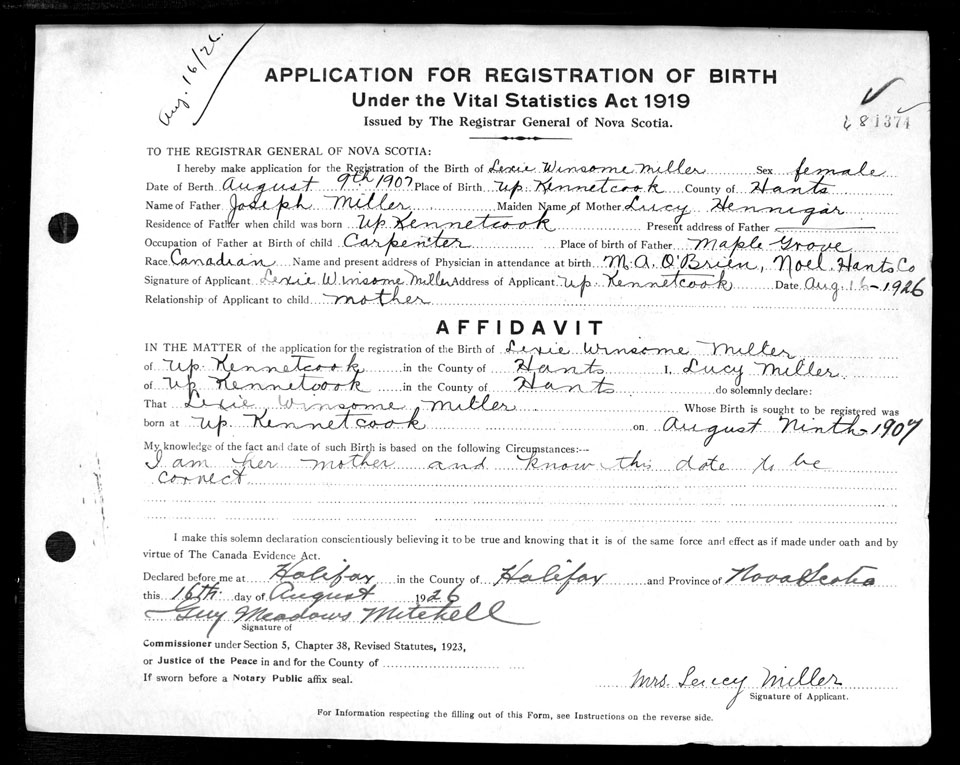 Aug. 16/26.
APPLICATION FOR REGISTRATION OF BIRTH
Under the Vital Statistics Act 1919
Issued by The Registrar General of Nova Scotia.
81374
TO THE REGISTRAR GENERAL OF NOVA SCOTIA:
I hereby make application for the Registration of the Birth of Lexie Winsome Miller Sex female
Date of Berth August 9th 1907 Place of Birth Up. Kennetcook County of Hants
Name of Father Joseph Miller Maiden Name of Mother Lucy Hennigar
Residence of Father when child was born Up. Kennetcook Present address of Father
Occupation of Father at Birth of child Carpenter Place of birth of Father Maple Grove
Race Canadian Name and present address of Physician in attendance at birth M. A. O'Brien, Noel. Hants Co
Signature of Applicant Lexie Winsome Miller Address of Applicant Up. Kennetcook Date Aug. 16-1926
Relationship of Applicant to child mother
AFFIDAVIT
IN THE MATTER of the application for the registration of the Birth of Lexie Winsome Miller
of Up. Kennetcook in the County of Hants I, Lucy Miller
of Up. Kennetcook in the County of Hants do solemnly declare:
That Lexie Winsome Miller Whose Birth is sought to be registered was
born at Up. Kennetcook on August Ninth-1907
My knowledge of the fact and date of such Birth is based on the following Circumstances:—
I am her mother and know this date to be
correct
I make this solemn declaration conscientiously believing it to be true and knowing that it is of the same force and effect as if made under oath and by
virtue of The Canada Evidence Act.
Declared before me at Halifax in the County of Halifax and Province of Nova Scotia
this 16th day of August 1926
Guy Meadows Mitchell
Signature of
Commissioner under Section 5, Chapter 38, Revised Statutes, 1923,
or Justice of the Peace in and for the County of
If sworn before a Notary Public affix seal.
Mrs. Lucy Miller
Signature of Applicant.
For Information respecting the filling out of this Form, see Instructions on the reverse side.